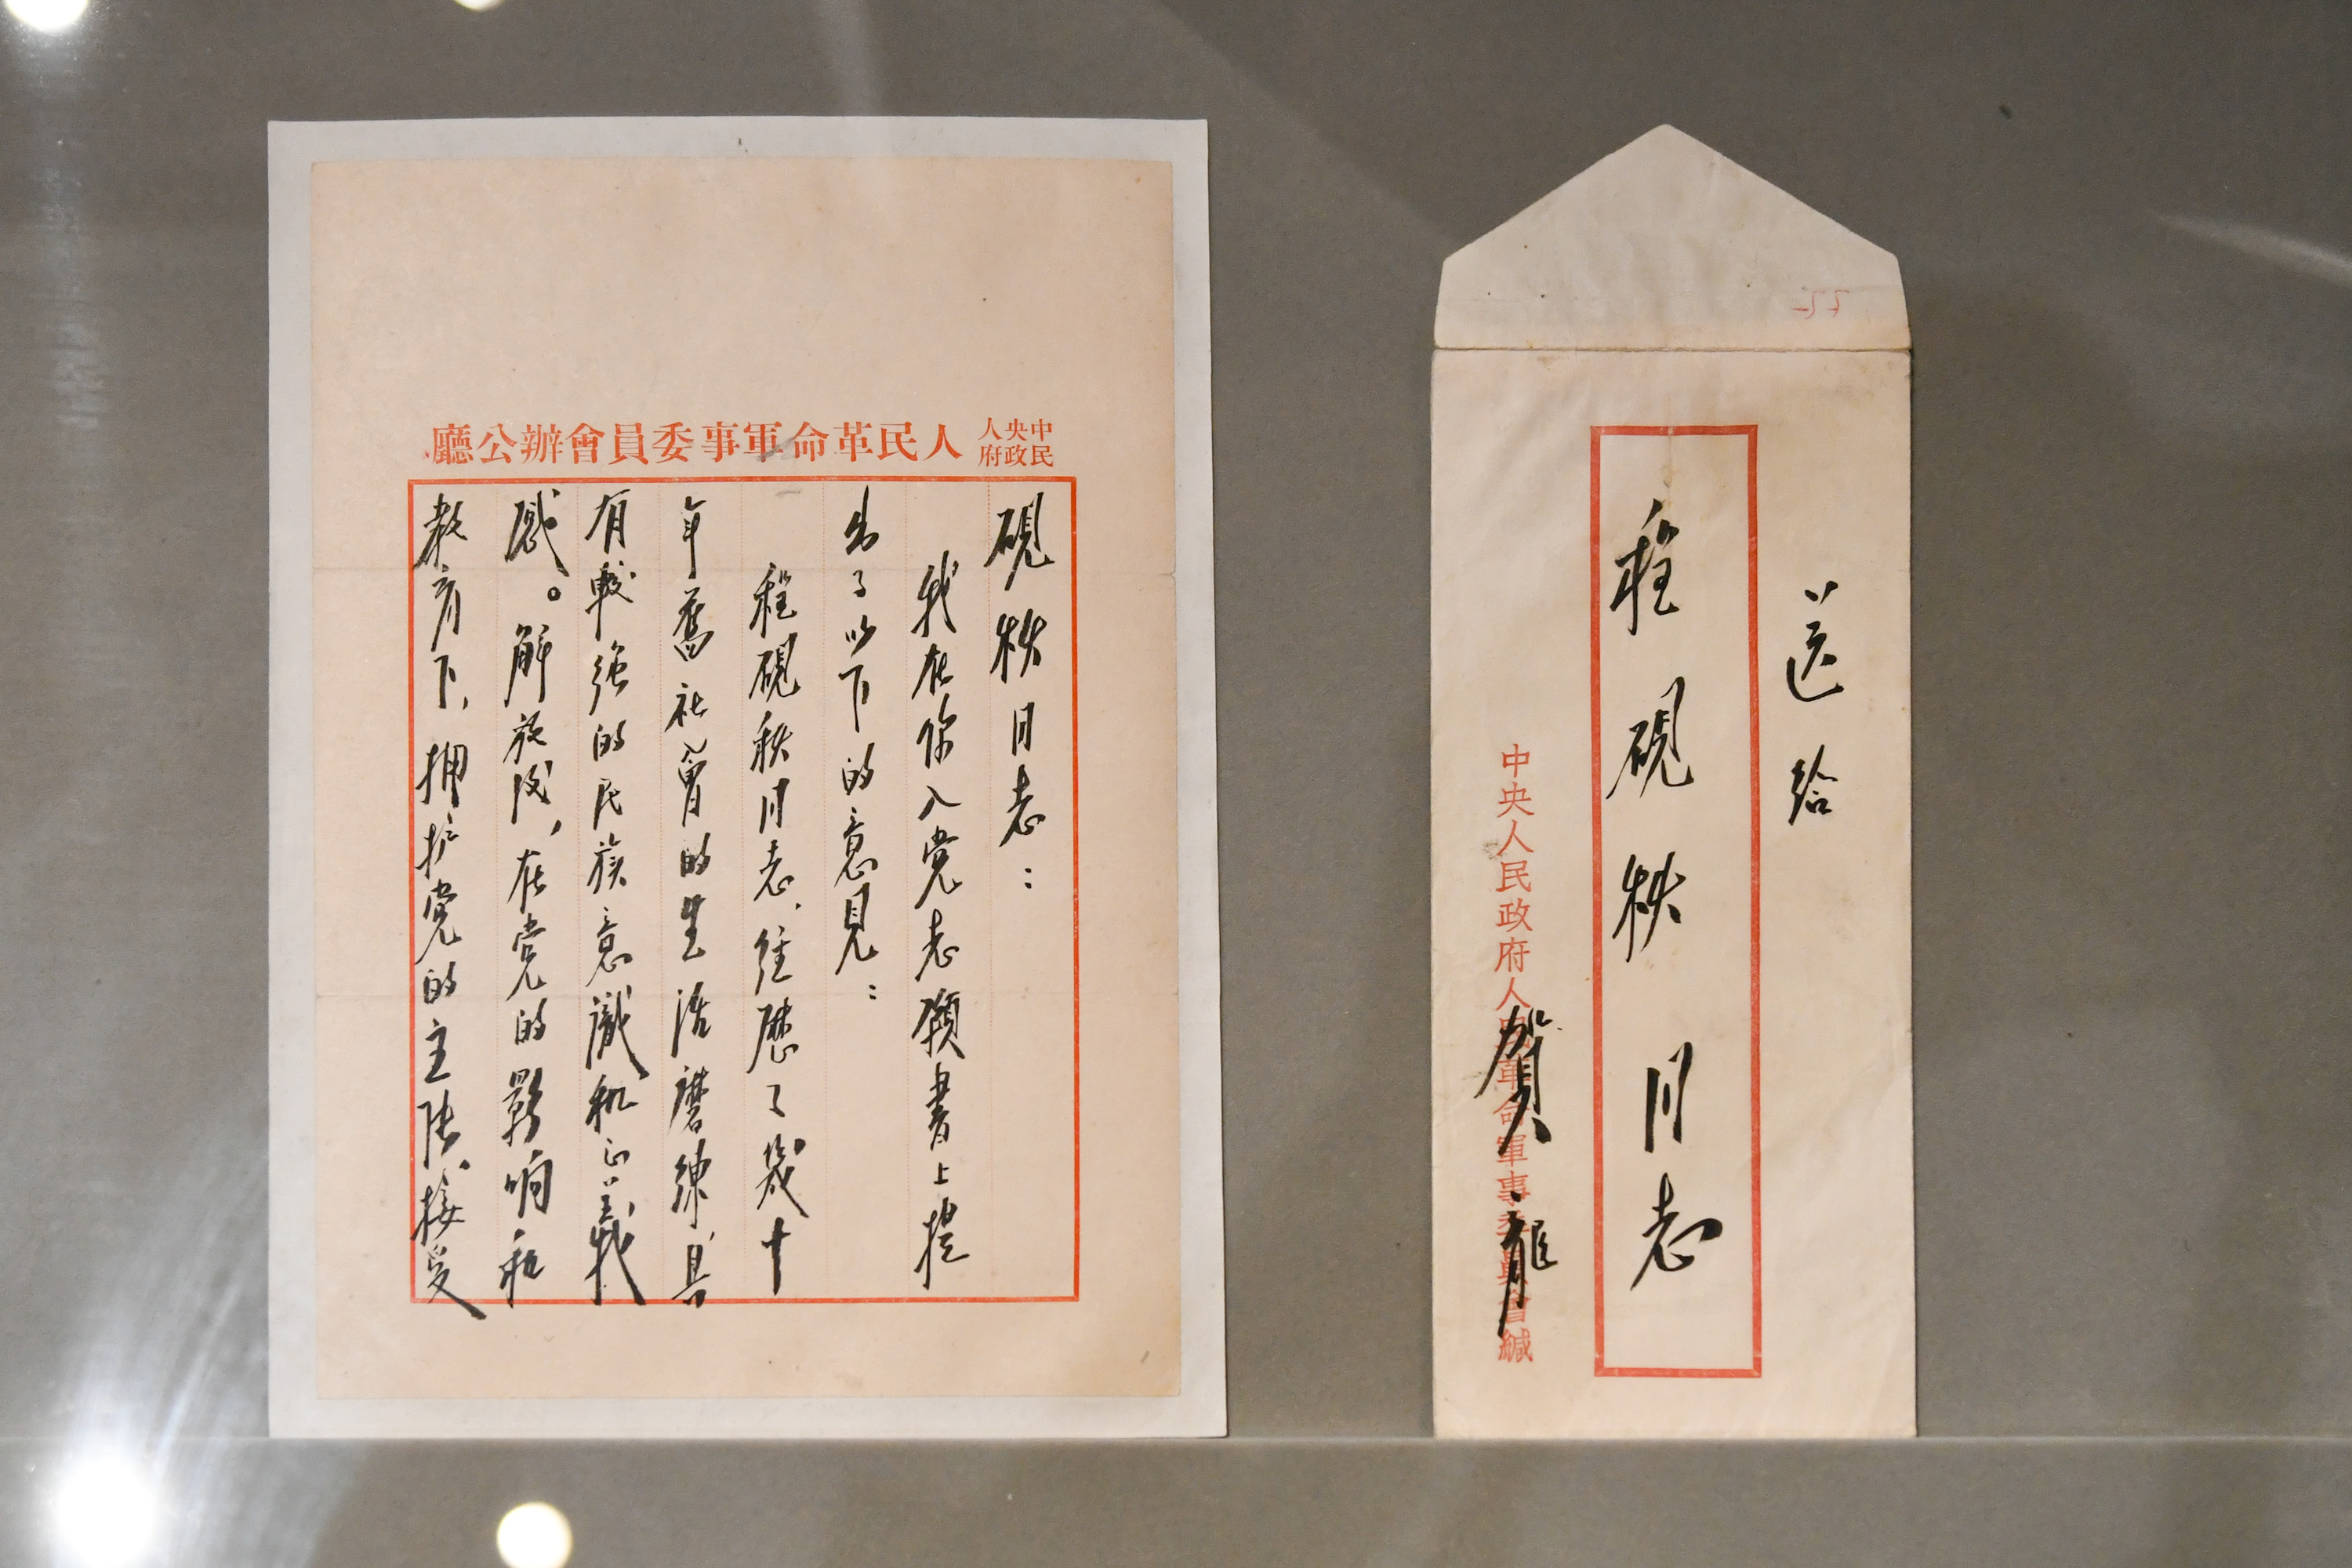 中央人民政府人民革命軍事委員會辦公廳
砚秋同志：
我在你入党志願書上提
出了以下的意見：
程砚秋同志，经歷了几十
年舊社會的生活磨练，具
有較強的民族意識和正义
感。解放后，在党的影响和
教育下，拥护党的主張，接受
送给
程砚秋同志
中央人民政府人民革命軍事委員會緘
賀龍